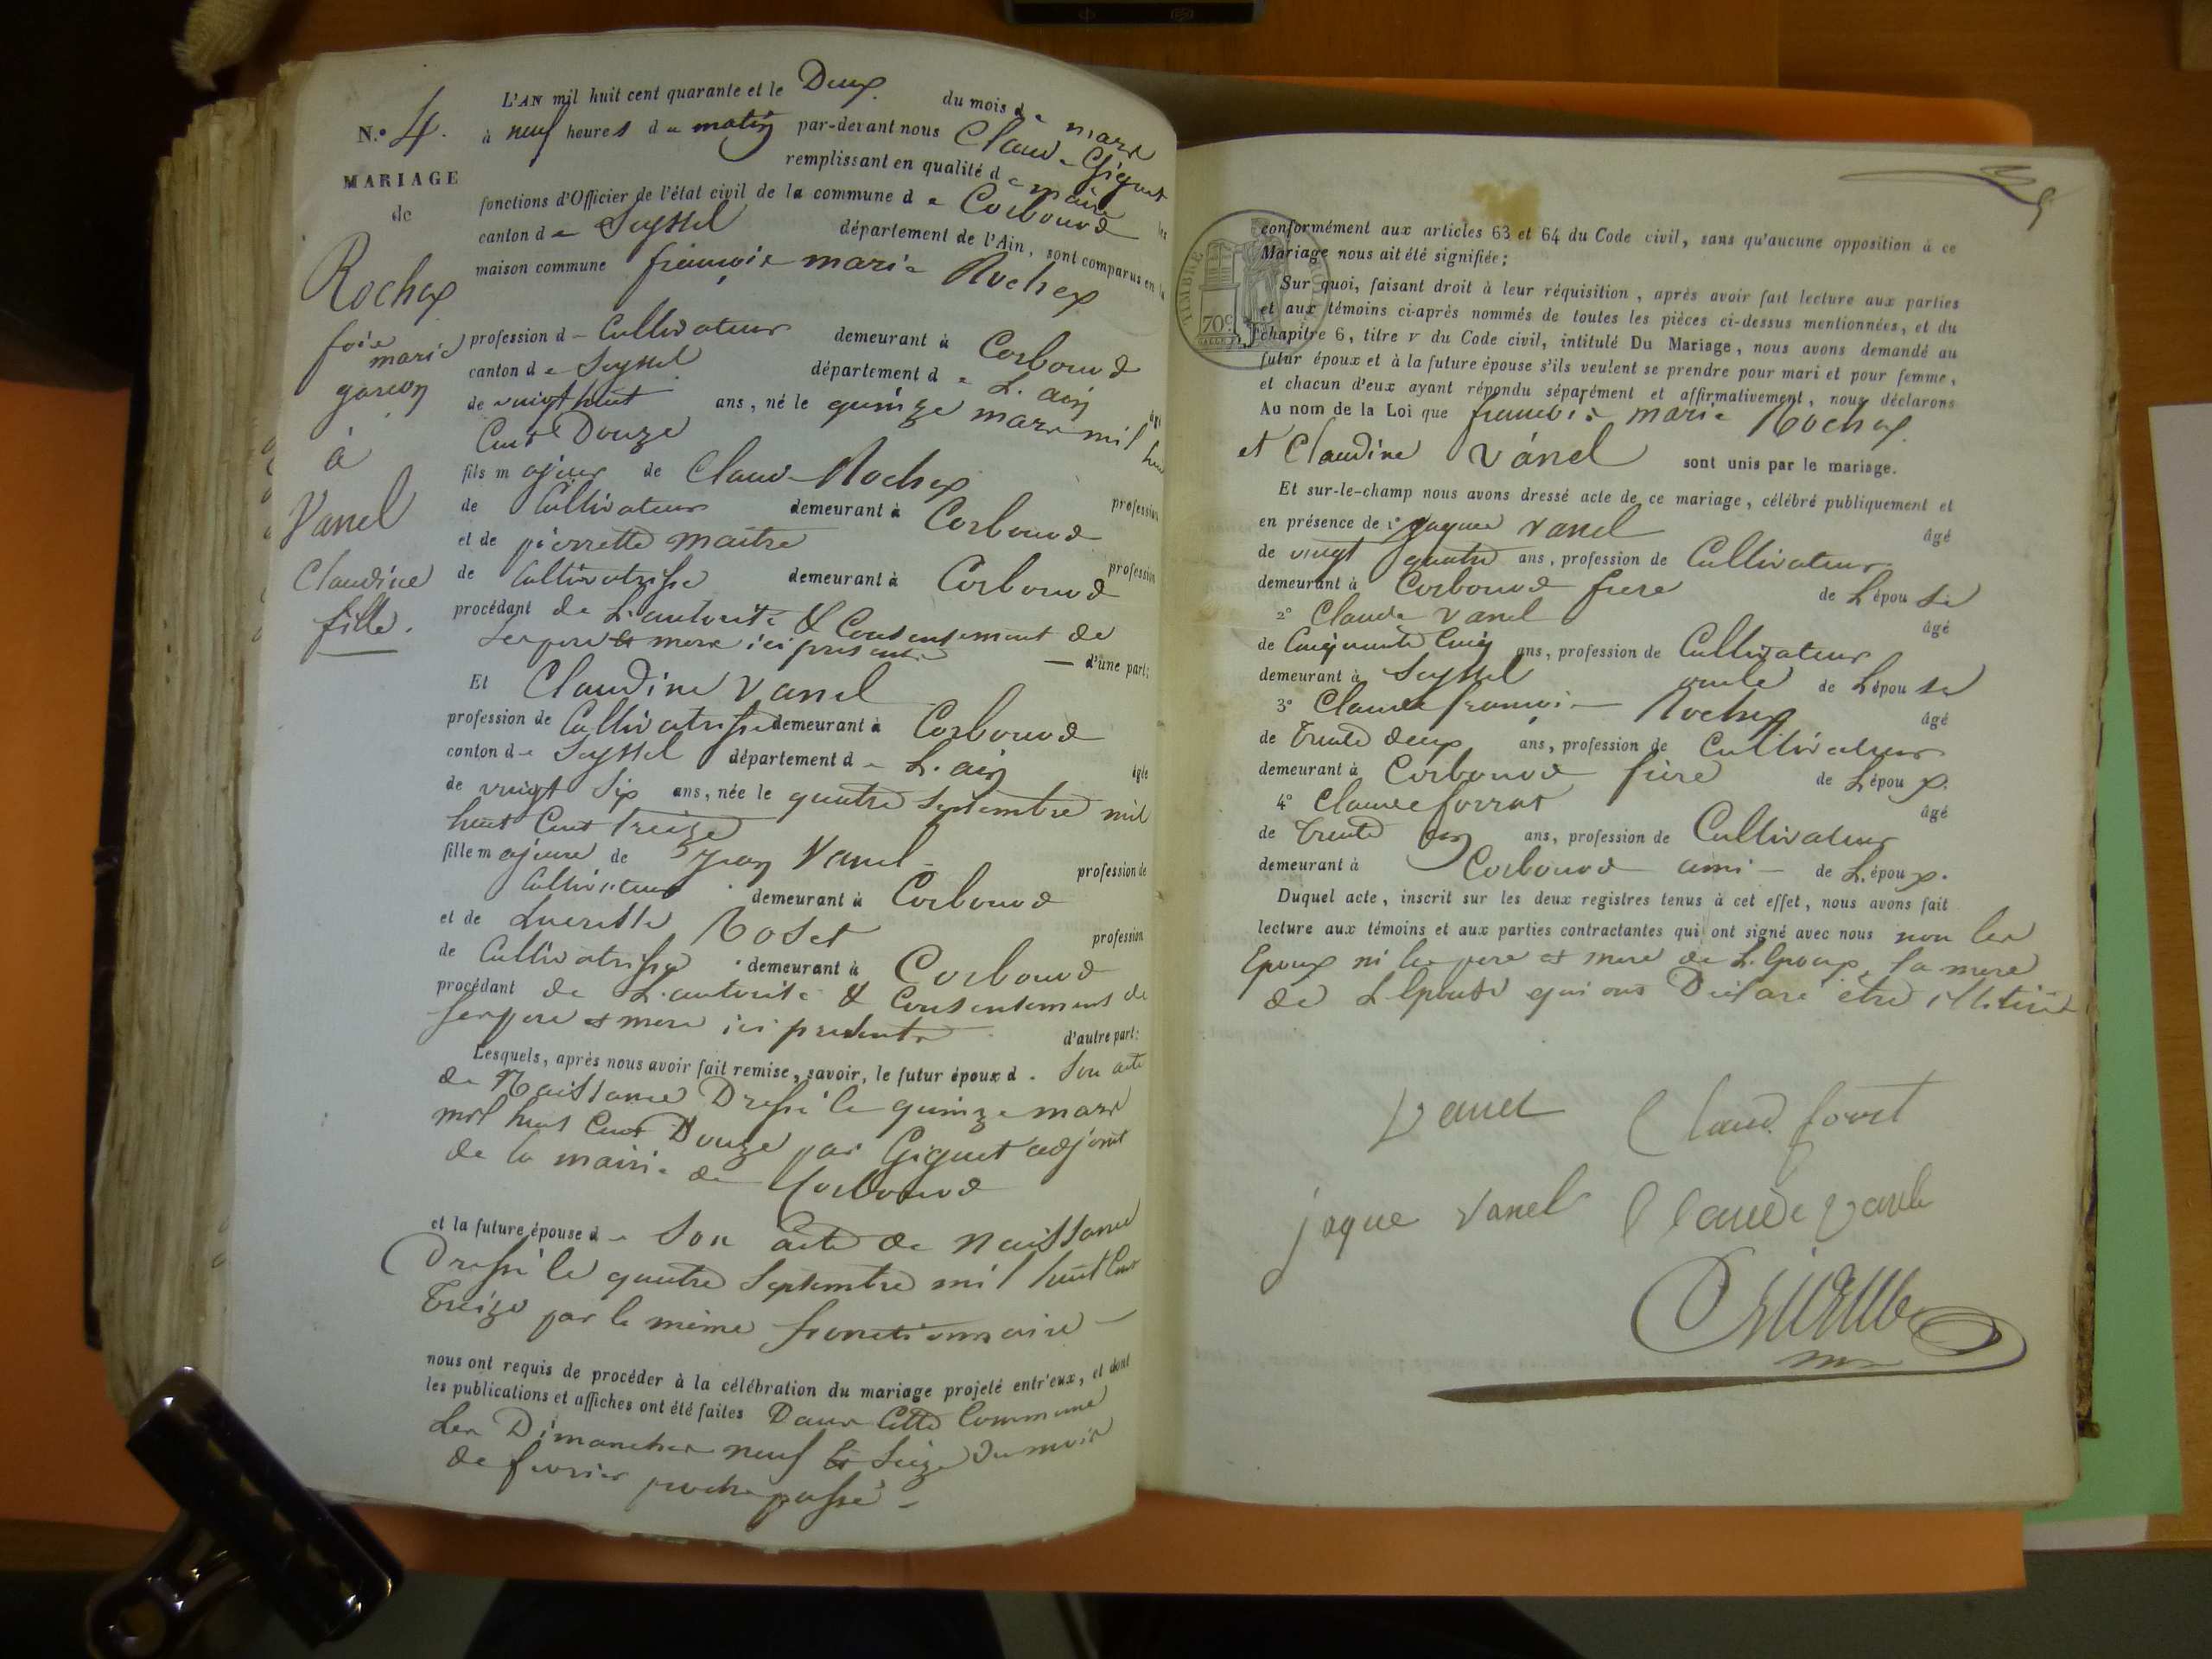 N.º 4.
MARIAGE
de
Rochex
fois
marie
garçon
à
Vanel
Claudine
fille.
L'AN mil huit cent quarante et le Deux du mois de mars
à neuf heures de matin par-devant nous Claude Giguet
remplissant en qualité de maire les
fonctions d'Officier de l'état civil de la commune de Corbonod
canton de Seyssel département de l'Ain, sont comparus en la
maison commune françois marie Rochex
profession d Cultivateur demeurant à Corbonod
canton de Seyssel département de L'ain âgé
de vingt huit ans, né le quinze mars mil huit
Cent Douze
fils majeur de Claude Rochex profession
de Cultivateur demeurant à Corbonod
et de pierrette maitre profession
de Cultivatrisse demeurant à Corbonod
procédant de L'autorité & Consentement de
Ses pere et mere ici presents — d'une part;
Et Claudine Vanel
profession de Cultivatrisse demeurant à Corbonod
canton de Seyssel département de L'ain âgée
de vingt Six ans, née le quatre Septembre mil
huit Cent treize
fille majeure de Jean Vanel profession de
Cultivateur demeurant à Corbonod
et de Lucresse Roset profession
de Cultivatrisse demeurant à Corbonod
procédant de L'autorité & Consentement de
Ses pere et mere ici presents d'autre part:
Lesquels, après nous avoir fait remise, savoir, le futur époux d. Son acte
de Naissance Dressé le quinze mars
mil huit Cent Douze par Giguet adjoint
de la mairie de Corbonod
et la future épouse de Son acte de Naissance
Dressé le quatre Septembre mil huit Cent
treize par le même fonctionnaire
nous ont requis de procéder à la célébration du mariage projeté entr'eux, et dont
les publications et affiches ont été faites Dans Cette Commune
Les Dimanches neuf et Seize Du mois
de fevrier proche passé
TIMBRE
70c
conformément aux articles 63 et 64 du Code civil, sans qu'aucune opposition à ce
Mariage nous ait été signifiée;
Sur quoi, faisant droit à leur réquisition, après avoir fait lecture aux parties
et aux témoins ci-après nommés de toutes les pièces ci-dessus mentionnées, et du
chapitre 6, titre v du Code civil, intitulé Du Mariage, nous avons demandé au
futur époux et à la future épouse s'ils veulent se prendre pour mari et pour femme,
et chacun d'eux ayant répondu séparément et affirmativement, nous déclarons
Au nom de la Loi que francois marie Rochex
et Claudine Vanel sont unis par le mariage.
Et sur-le-champ nous avons dressé acte de ce mariage, célébré publiquement et
en présence de 1° Jaques Vanel âgé
de vingt quatre ans, profession de Cultivateur
demeurant à Corbonod frere de L'épouse
2° Claude Vanel âgé
de Cinquante Cinq ans, profession de Cultivateur
demeurant à Seyssel oncle de L'épouse
3° Claude francois Rochex âgé
de trente deux ans, profession de Cultivateur
demeurant à Corbonod frere de L'époux.
4° Claude forrat âgé
de trente ans, profession de Cultivateur
demeurant à Corbonod ami de L'époux.
Duquel acte, inscrit sur les deux registres tenus à cet effet, nous avons fait
lecture aux témoins et aux parties contractantes qui ont signé avec nous non les
Epoux ni les pere et mere de L'Epoux, la mere
de L'Epouse qui ont Déclaré etre illetirés
Vanel
jaque Vanel